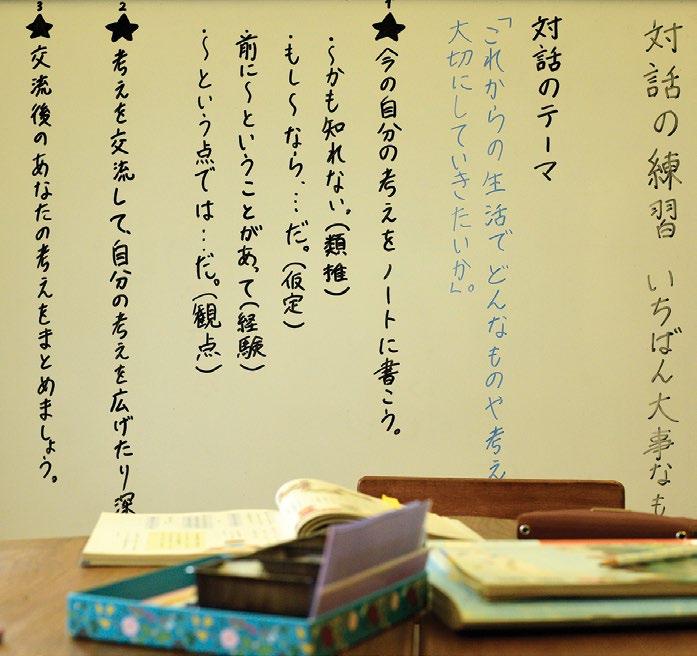 対話の練習 いちばん大事なも
対話のテーマ
「これからの生活でどんなものや考え
大切にしていきたいか」。
1
★今の自分の考えをノートに書こう。
・～かも知れない。(類推)
・もし～なら、…だ。(仮定)
・前に～ということがあって(経験)
・～という点では…だ。(観点)
2
★考えを交流して、自分の考えを広げたり深
3
★交流後のあなたの考えをまとめましょう。